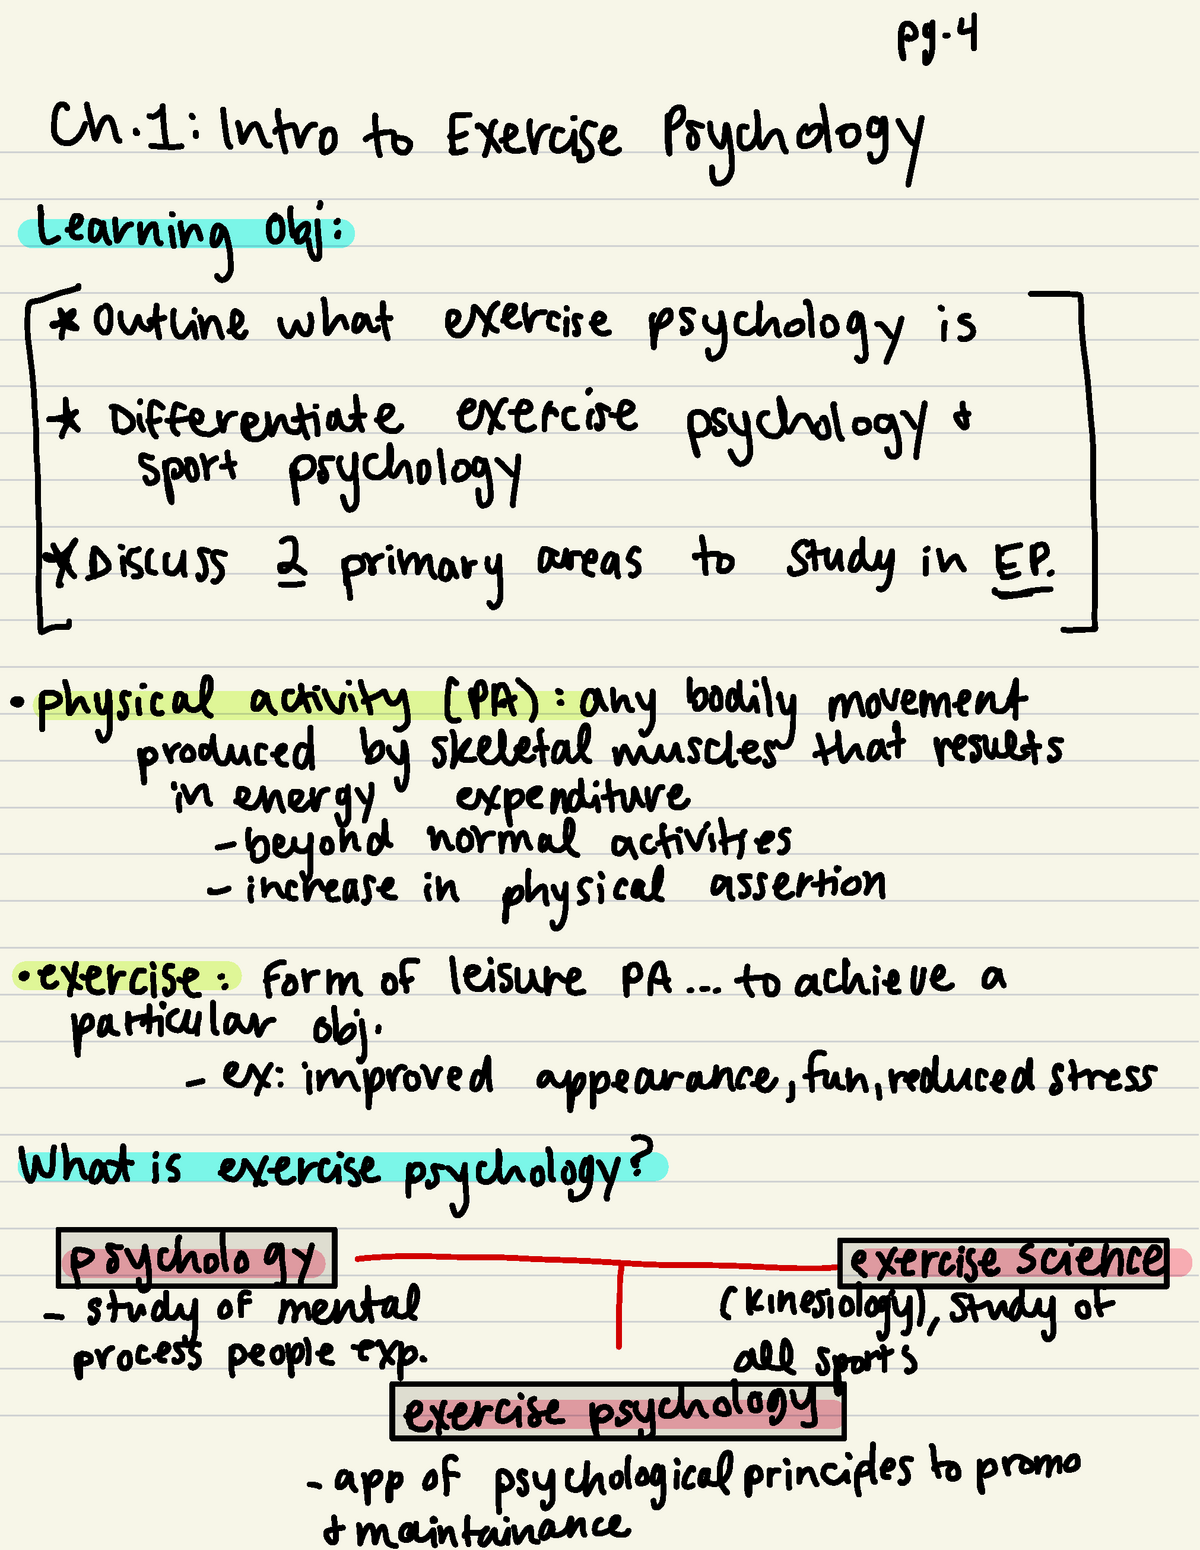 pg.4
Ch.1: Intro to Exercise Psychology
Learning Obj:
* Outline what exercise psychology is
* Differentiate exercise psychology &
sport psychology
* Discuss 2 primary areas to study in EP.
• physical activity (PA): any bodily movement
produced by skeletal muscles that results
in energy expenditure
- beyond normal activities
- increase in physical assertion
• exercise: form of leisure PA... to achieve a
particular obj.
- ex: improved appearance, fun, reduced stress
What is exercise psychology?
psychology
exercise science
- study of mental
process people exp.
(kinesiology), study of
all sports
exercise psychology
- app of psychological principles to promo
& maintainance